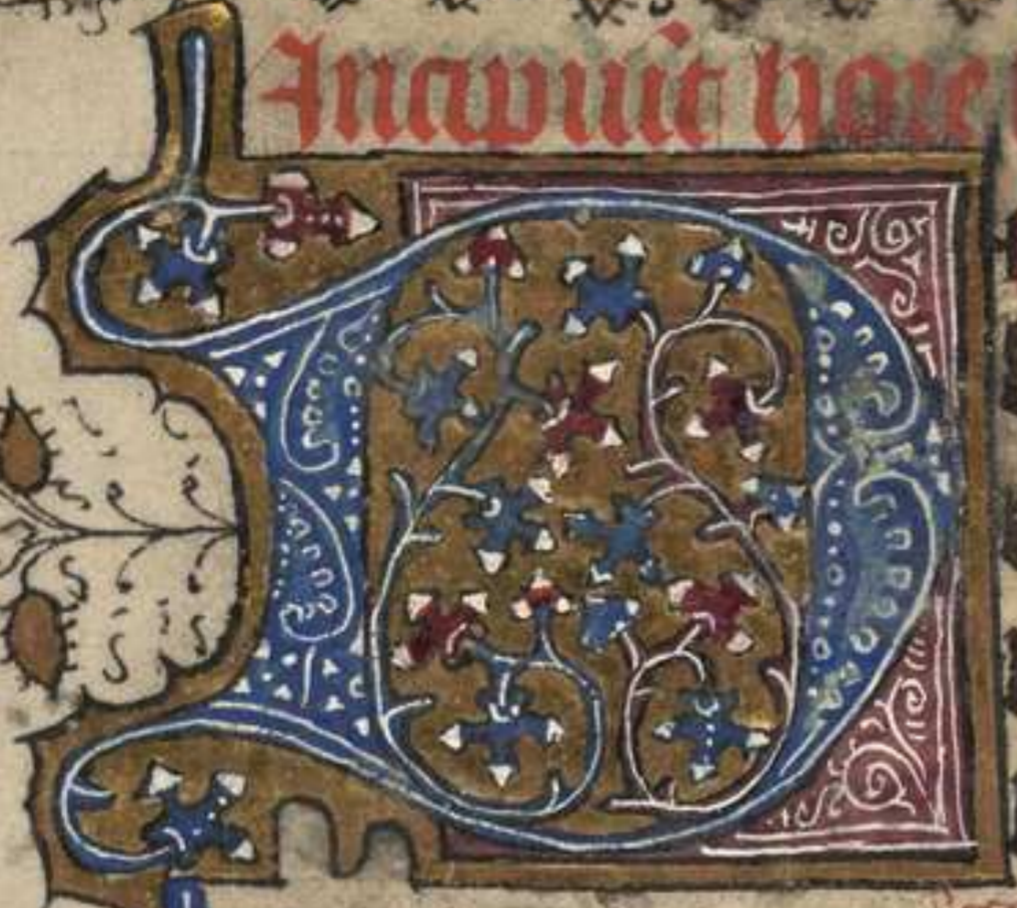 Incipiu͞t hore
D